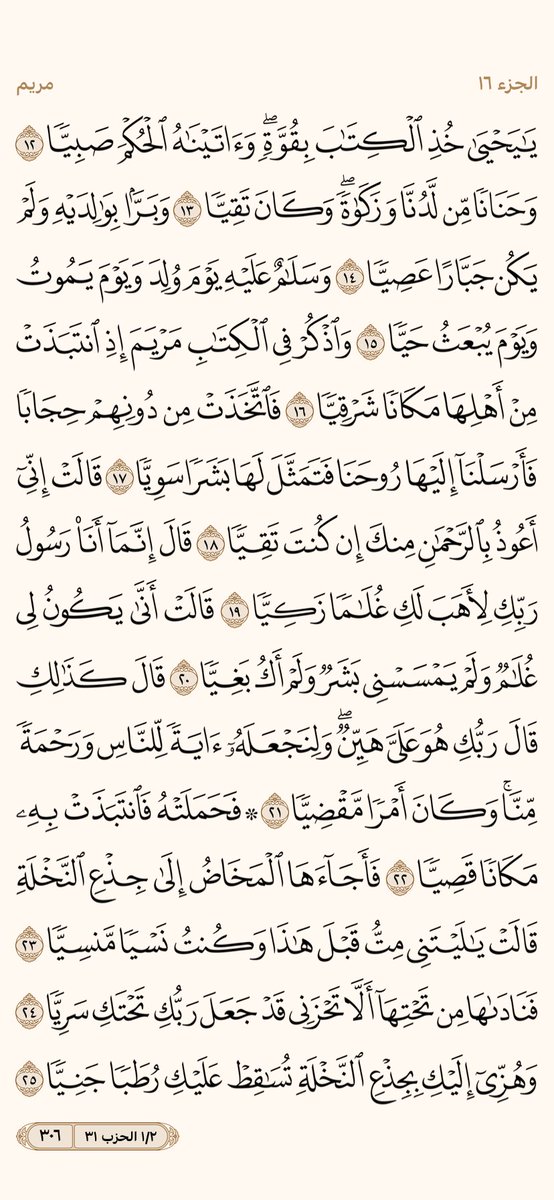 الجزء ١٦
مريم
يَٰيَحْيَىٰ خُذِ ٱلْكِتَٰبَ بِقُوَّةٖۖ وَءَاتَيْنَٰهُ ٱلْحُكْمَ صَبِيّٗا ١٢
وَحَنَانٗا مِّن لَّدُنَّا وَزَكَوٰةٗۖ وَكَانَ تَقِيّٗا ١٣ وَبَرَّۢا بِوَٰلِدَيْهِ وَلَمْ
يَكُن جَبَّارًا عَصِيّٗا ١٤ وَسَلَٰمٌ عَلَيْهِ يَوْمَ وُلِدَ وَيَوْمَ يَمُوتُ
وَيَوْمَ يُبْعَثُ حَيّٗا ١٥ وَٱذْكُرْ فِى ٱلْكِتَٰبِ مَرْيَمَ إِذِ ٱنتَبَذَتْ
مِنْ أَهْلِهَا مَكَانٗا شَرْقِيّٗا ١٦ فَٱتَّخَذَتْ مِن دُونِهِمْ حِجَابٗا
فَأَرْسَلْنَآ إِلَيْهَا رُوحَنَا فَتَمَثَّلَ لَهَا بَشَرٗا سَوِيّٗا ١٧ قَالَتْ إِنِّىٓ
أَعُوذُ بِٱلرَّحْمَٰنِ مِنكَ إِن كُنتَ تَقِيّٗا ١٨ قَالَ إِنَّمَآ أَنَا۠ رَسُولُ
رَبِّكِ لِأَهَبَ لَكِ غُلَٰمٗا زَكِيّٗا ١٩ قَالَتْ أَنَّىٰ يَكُونُ لِى
غُلَٰمٞ وَلَمْ يَمْسَسْنِى بَشَرٞ وَلَمْ أَكُ بَغِيّٗا ٢٠ قَالَ كَذَٰلِكِ
قَالَ رَبُّكِ هُوَ عَلَىَّ هَيِّنٞۖ وَلِنَجْعَلَهُۥٓ ءَايَةٗ لِّلنَّاسِ وَرَحْمَةٗ
مِّنَّاۚ وَكَانَ أَمْرٗا مَّقْضِيّٗا ٢١ ۞ فَحَمَلَتْهُ فَٱنتَبَذَتْ بِهِۦ
مَكَانٗا قَصِيّٗا ٢٢ فَأَجَآءَهَا ٱلْمَخَاضُ إِلَىٰ جِذْعِ ٱلنَّخْلَةِ
قَالَتْ يَٰلَيْتَنِى مِتُّ قَبْلَ هَٰذَا وَكُنتُ نَسْيٗا مَّنسِيّٗا ٢٣
فَنَادَىٰهَا مِن تَحْتِهَآ أَلَّا تَحْزَنِى قَدْ جَعَلَ رَبُّكِ تَحْتَكِ سَرِيّٗا ٢٤
وَهُزِّىٓ إِلَيْكِ بِجِذْعِ ٱلنَّخْلَةِ تُسَٰقِطْ عَلَيْكِ رُطَبٗا جَنِيّٗا ٢٥
١/٢ الحزب ٣١
٣٠٦